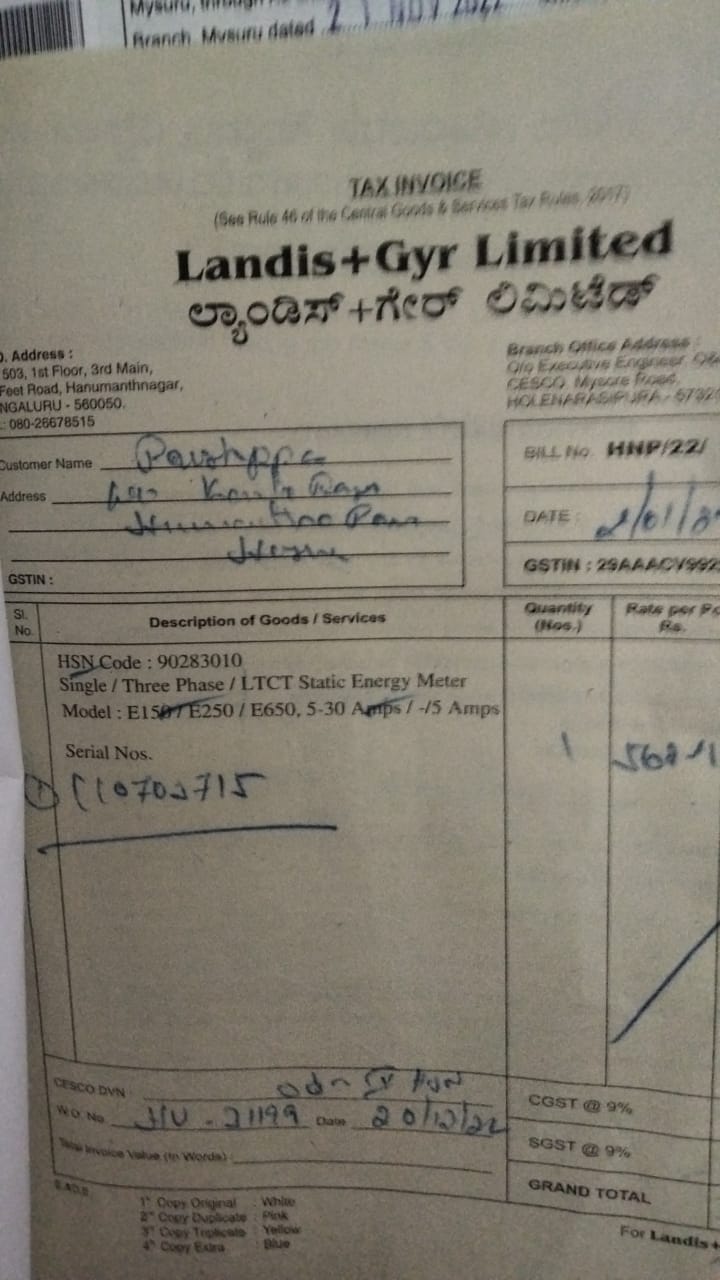 Mysuru, through
Branch Mysuru dated 2
TAX INVOICE
(See Rule 46 of the Central Goods & Services Tax Rules, 2017)
Landis+Gyr Limited
ಲ್ಯಾಂಡಿಸ್+ಗೇರ್ ಲಿಮಿಟೆಡ್
. Address :
503, 1st Floor, 3rd Main,
Feet Road, Hanumanthnagar,
NGALURU - 560050.
.: 080-26678515
Branch Office Address :
O/o Executive Engineer, O&
CESCO, Mysore Road,
HOLENARASIPURA - 5732
Customer Name
Address
GSTIN :
BILL No. HNP/22/
DATE : 2/01/2
GSTIN : 29AAACV992
Sl. No.
Description of Goods / Services
Quantity (Nos.)
Rate per
Rs.
HSN Code : 90283010
Single / Three Phase / LTCT Static Energy Meter
Model : E150 / E250 / E650, 5-30 Amps / -/5 Amps
Serial Nos.
1
CESCO DVN :
W.O. No. 21199 Date 20/12/22
Total Invoice Value (In Words)
CGST @ 9%
SGST @ 9%
GRAND TOTAL
E.&O.E
1st Copy Original : White
2nd Copy Duplicate : Pink
3rd Copy Triplicate : Yellow
4th Copy Extra : Blue
For Landis+